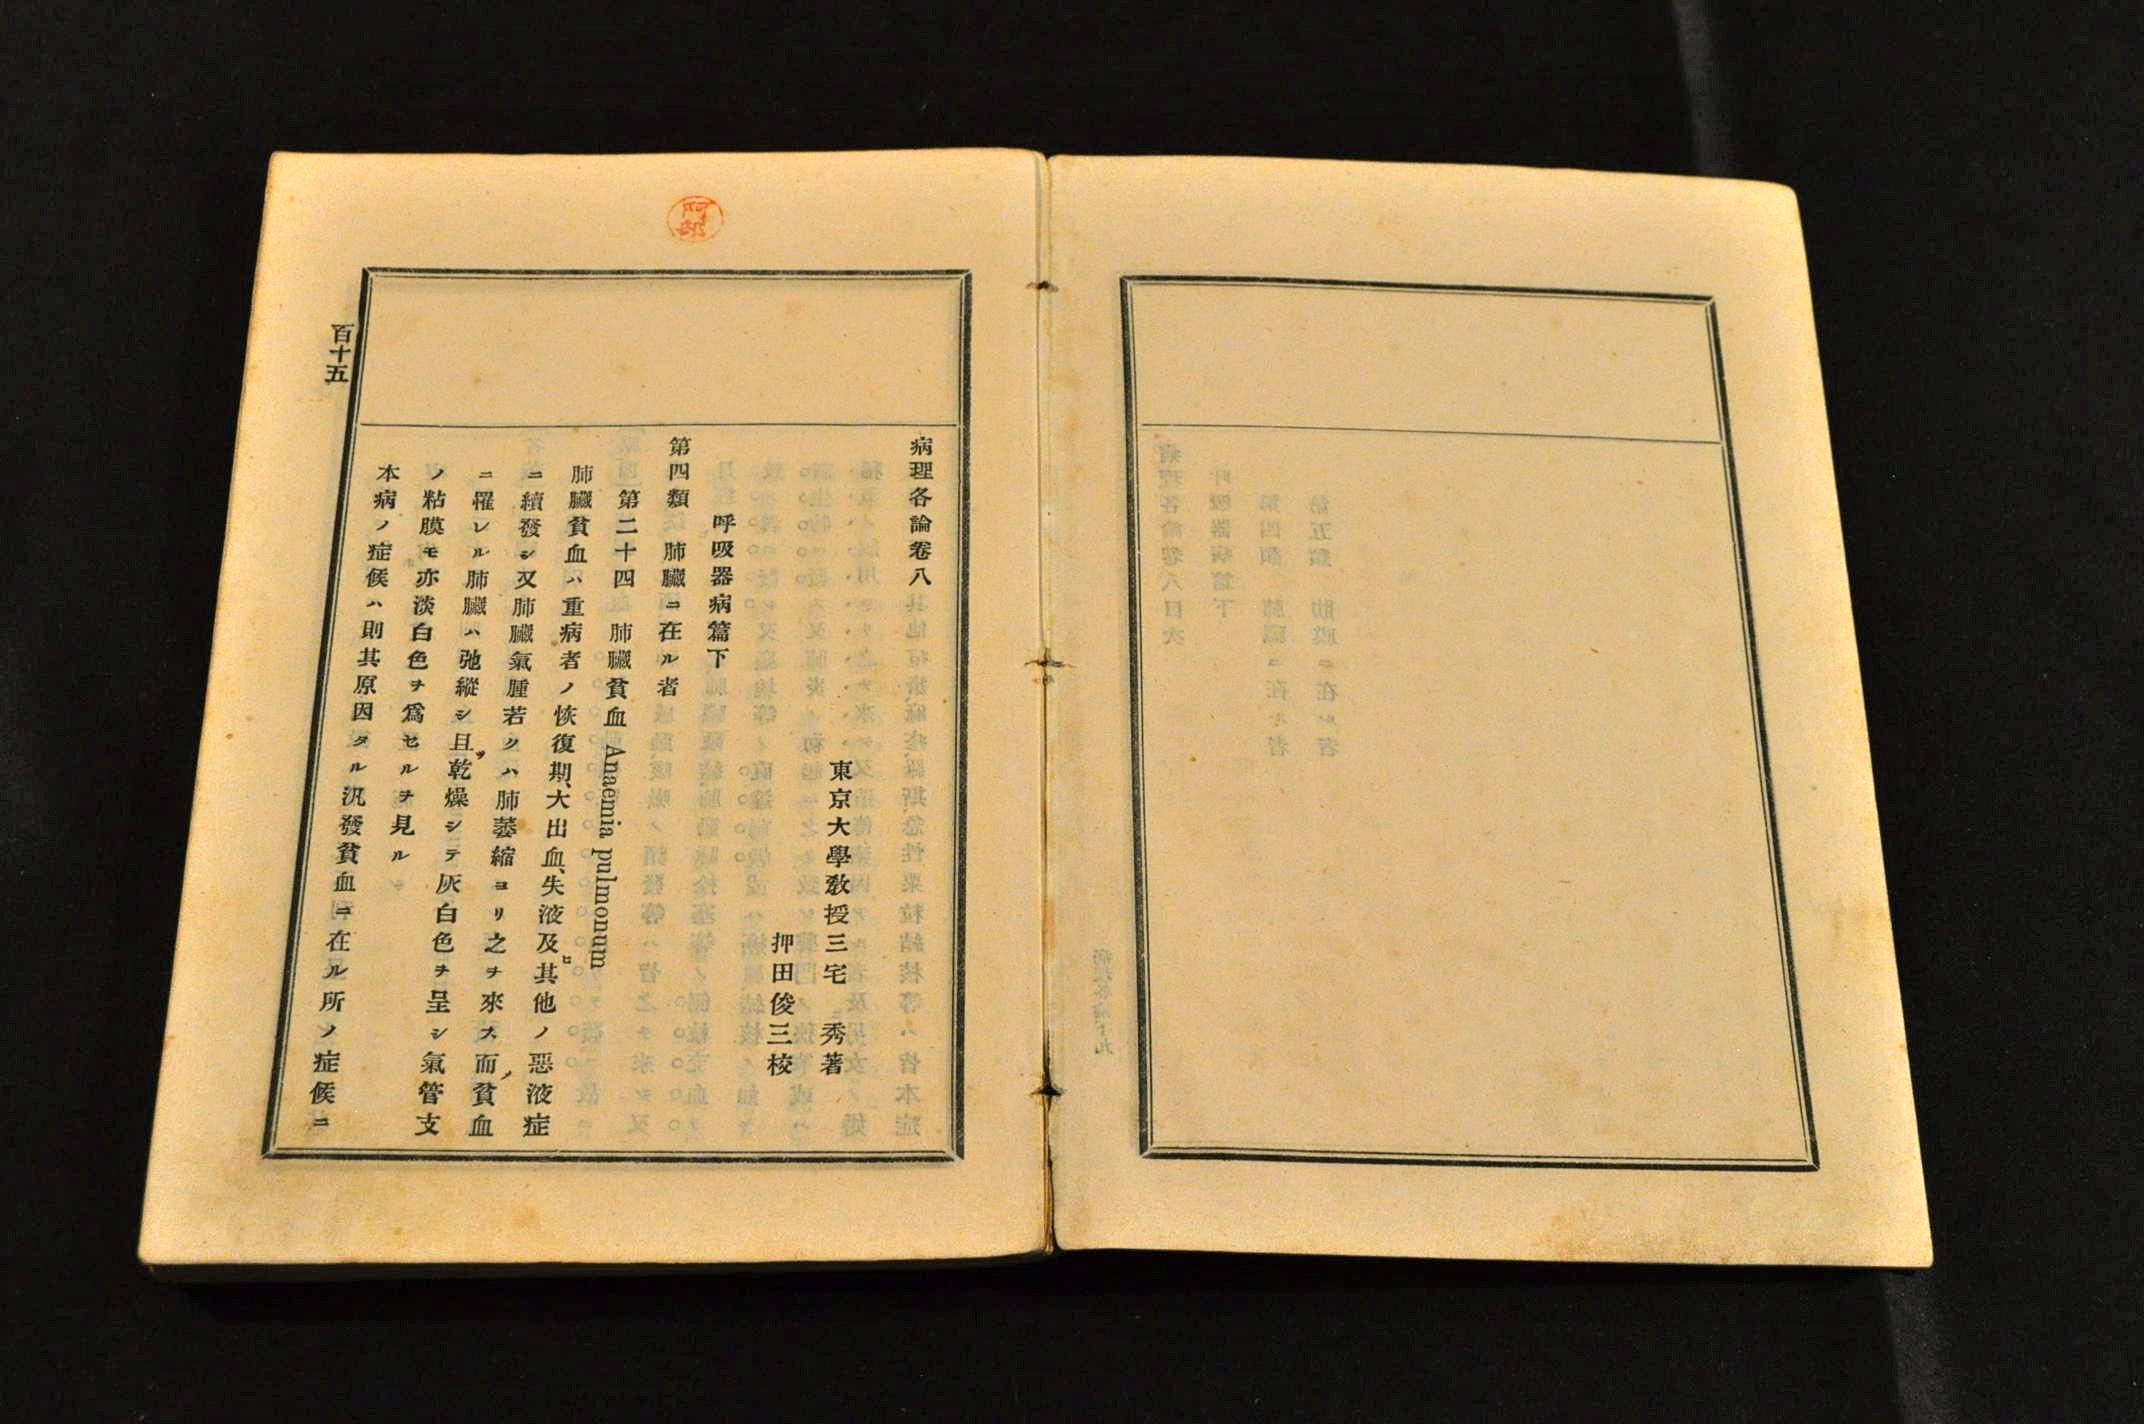 病理各論卷八
東京大學敎授三宅 秀著
押田俊三校
呼吸器病篇下
第四類 肺臟ニ在ル者
第二十四 肺臟貧血 Anaemia pulmonum
肺臟貧血ハ重病者ノ恢復期、大出血、失液及ヒ其他ノ惡液症
ニ續發シ又肺臟氣腫若クハ肺萎縮ヨリ之ヲ來ス而ノ貧血
ニ罹レル肺臟ハ弛縱シ且ツ乾燥シテ灰白色ヲ呈シ氣管支
ノ粘膜モ亦淡白色ヲ爲セルヲ見ル
本病ノ症候ハ則其原因タル汎發貧血ニ在ル所ノ症候ニ
百十五
阿部